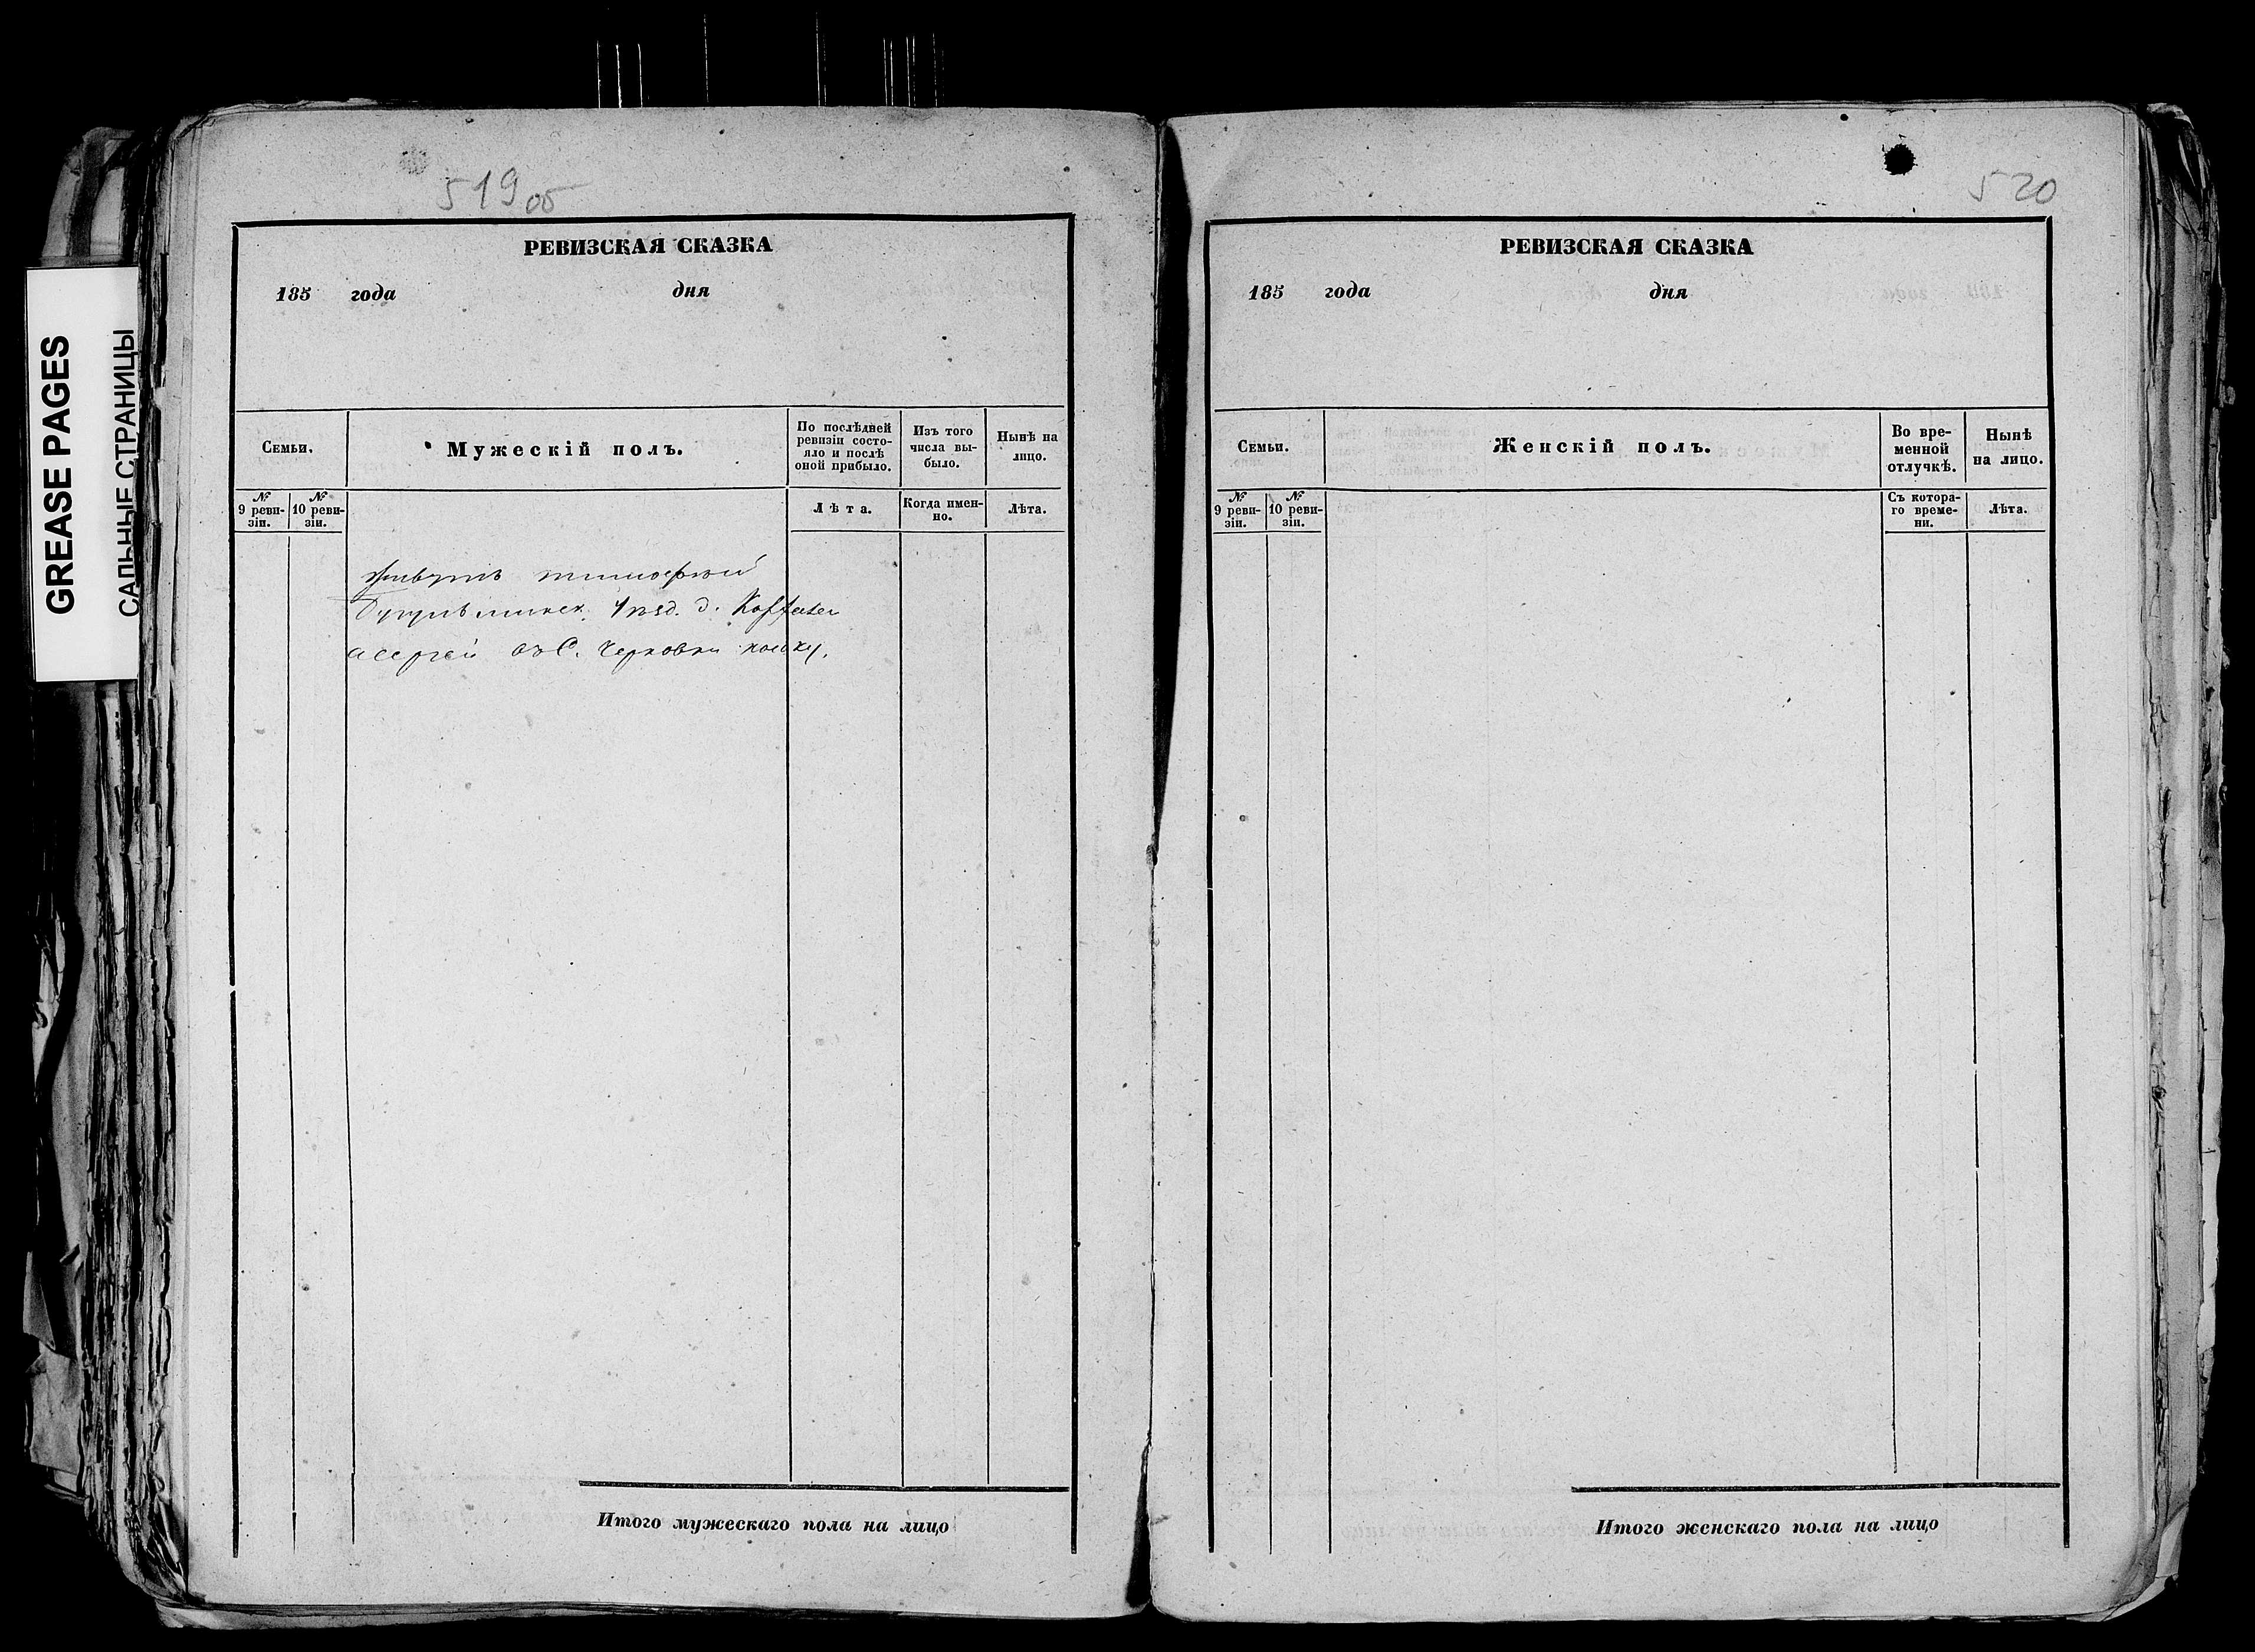 GREASE PAGES
САЛЬНЫЕ СТРАНИЦЫ
519 об
РЕВИЗСКАЯ СКАЗКА
185 года дня
Семьи.
Мужескій полъ.
По послѣдней
ревизіи состо-
яло и послѣ
оной прибыло.
Изъ того
числа вы-
было.
Нынѣ на
лицо.
№
9 реви-
зіи.
№
10 реви-
зіи.
Лѣта.
Когда имен-
но.
Лѣта.
живутъ
уѣзд. д.
въ С.
Итого мужескаго пола на лицо
520
РЕВИЗСКАЯ СКАЗКА
185 года дня
Семьи.
Женскій полъ.
Во вре-
менной
отлучкѣ.
Нынѣ
на лицо.
№
9 реви-
зіи.
№
10 реви-
зіи.
Съ котора-
го време-
ни.
Лѣта.
Итого женскаго пола на лицо